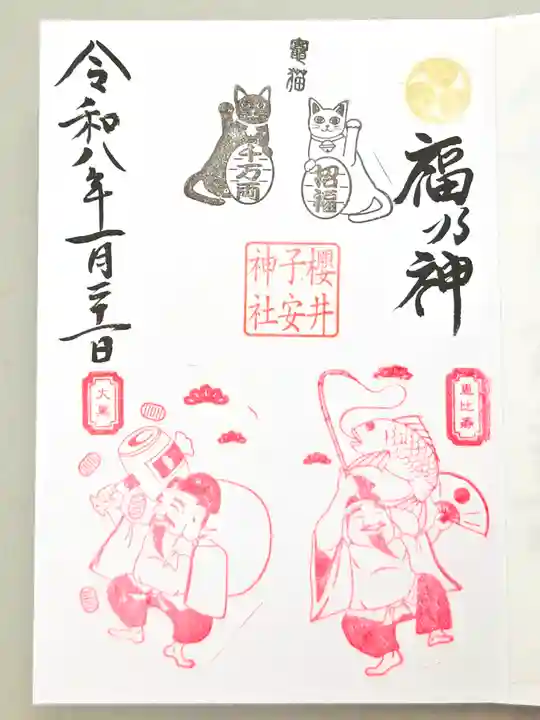 福乃神
竈猫
招福
千万両
櫻井
子安
神社
令和八年一月二十一日
恵比寿
大黒